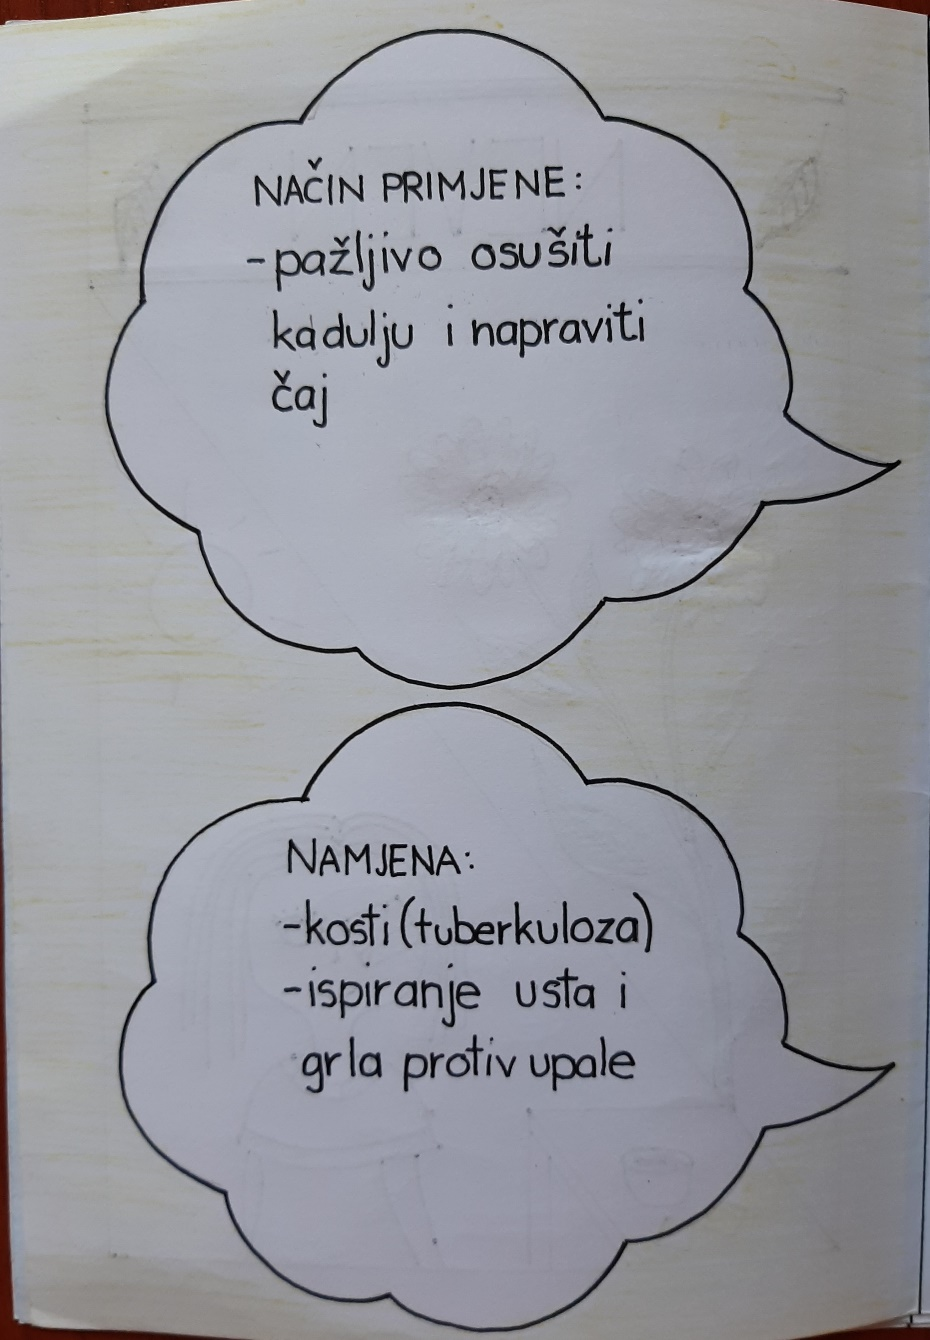 NAČIN PRIMJENE:
-pažljivo osušiti
kadulju i napraviti
čaj
NAMJENA:
-kosti (tuberkuloza)
-ispiranje usta i
grla protiv upale